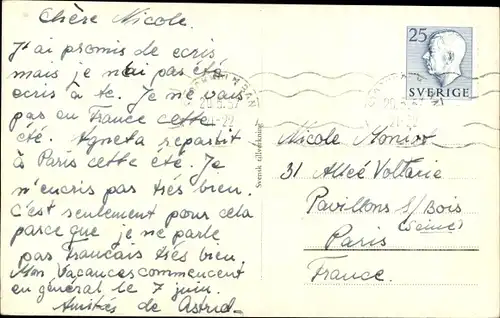 Chère Nicole.
J'ai promis de ecris
mais je n'ai pas été
ecris à te. Je ne vais
pas en France cette
été. Agneta repartit
à Paris cette été. Je
n'encris pas trés bien.
C'est seulement pour cela
parce que je ne parle
pas Francais trés bien.
Mon Vacances commencent
en général le 7 juin.
Amitiés de Astrid
25
SVERIGE
20.5.57
20.5.57
Svensk tillverkning
Nicole
31 Allée Voltaire
Pavillons s/Bois
(Seine)
Paris
France.